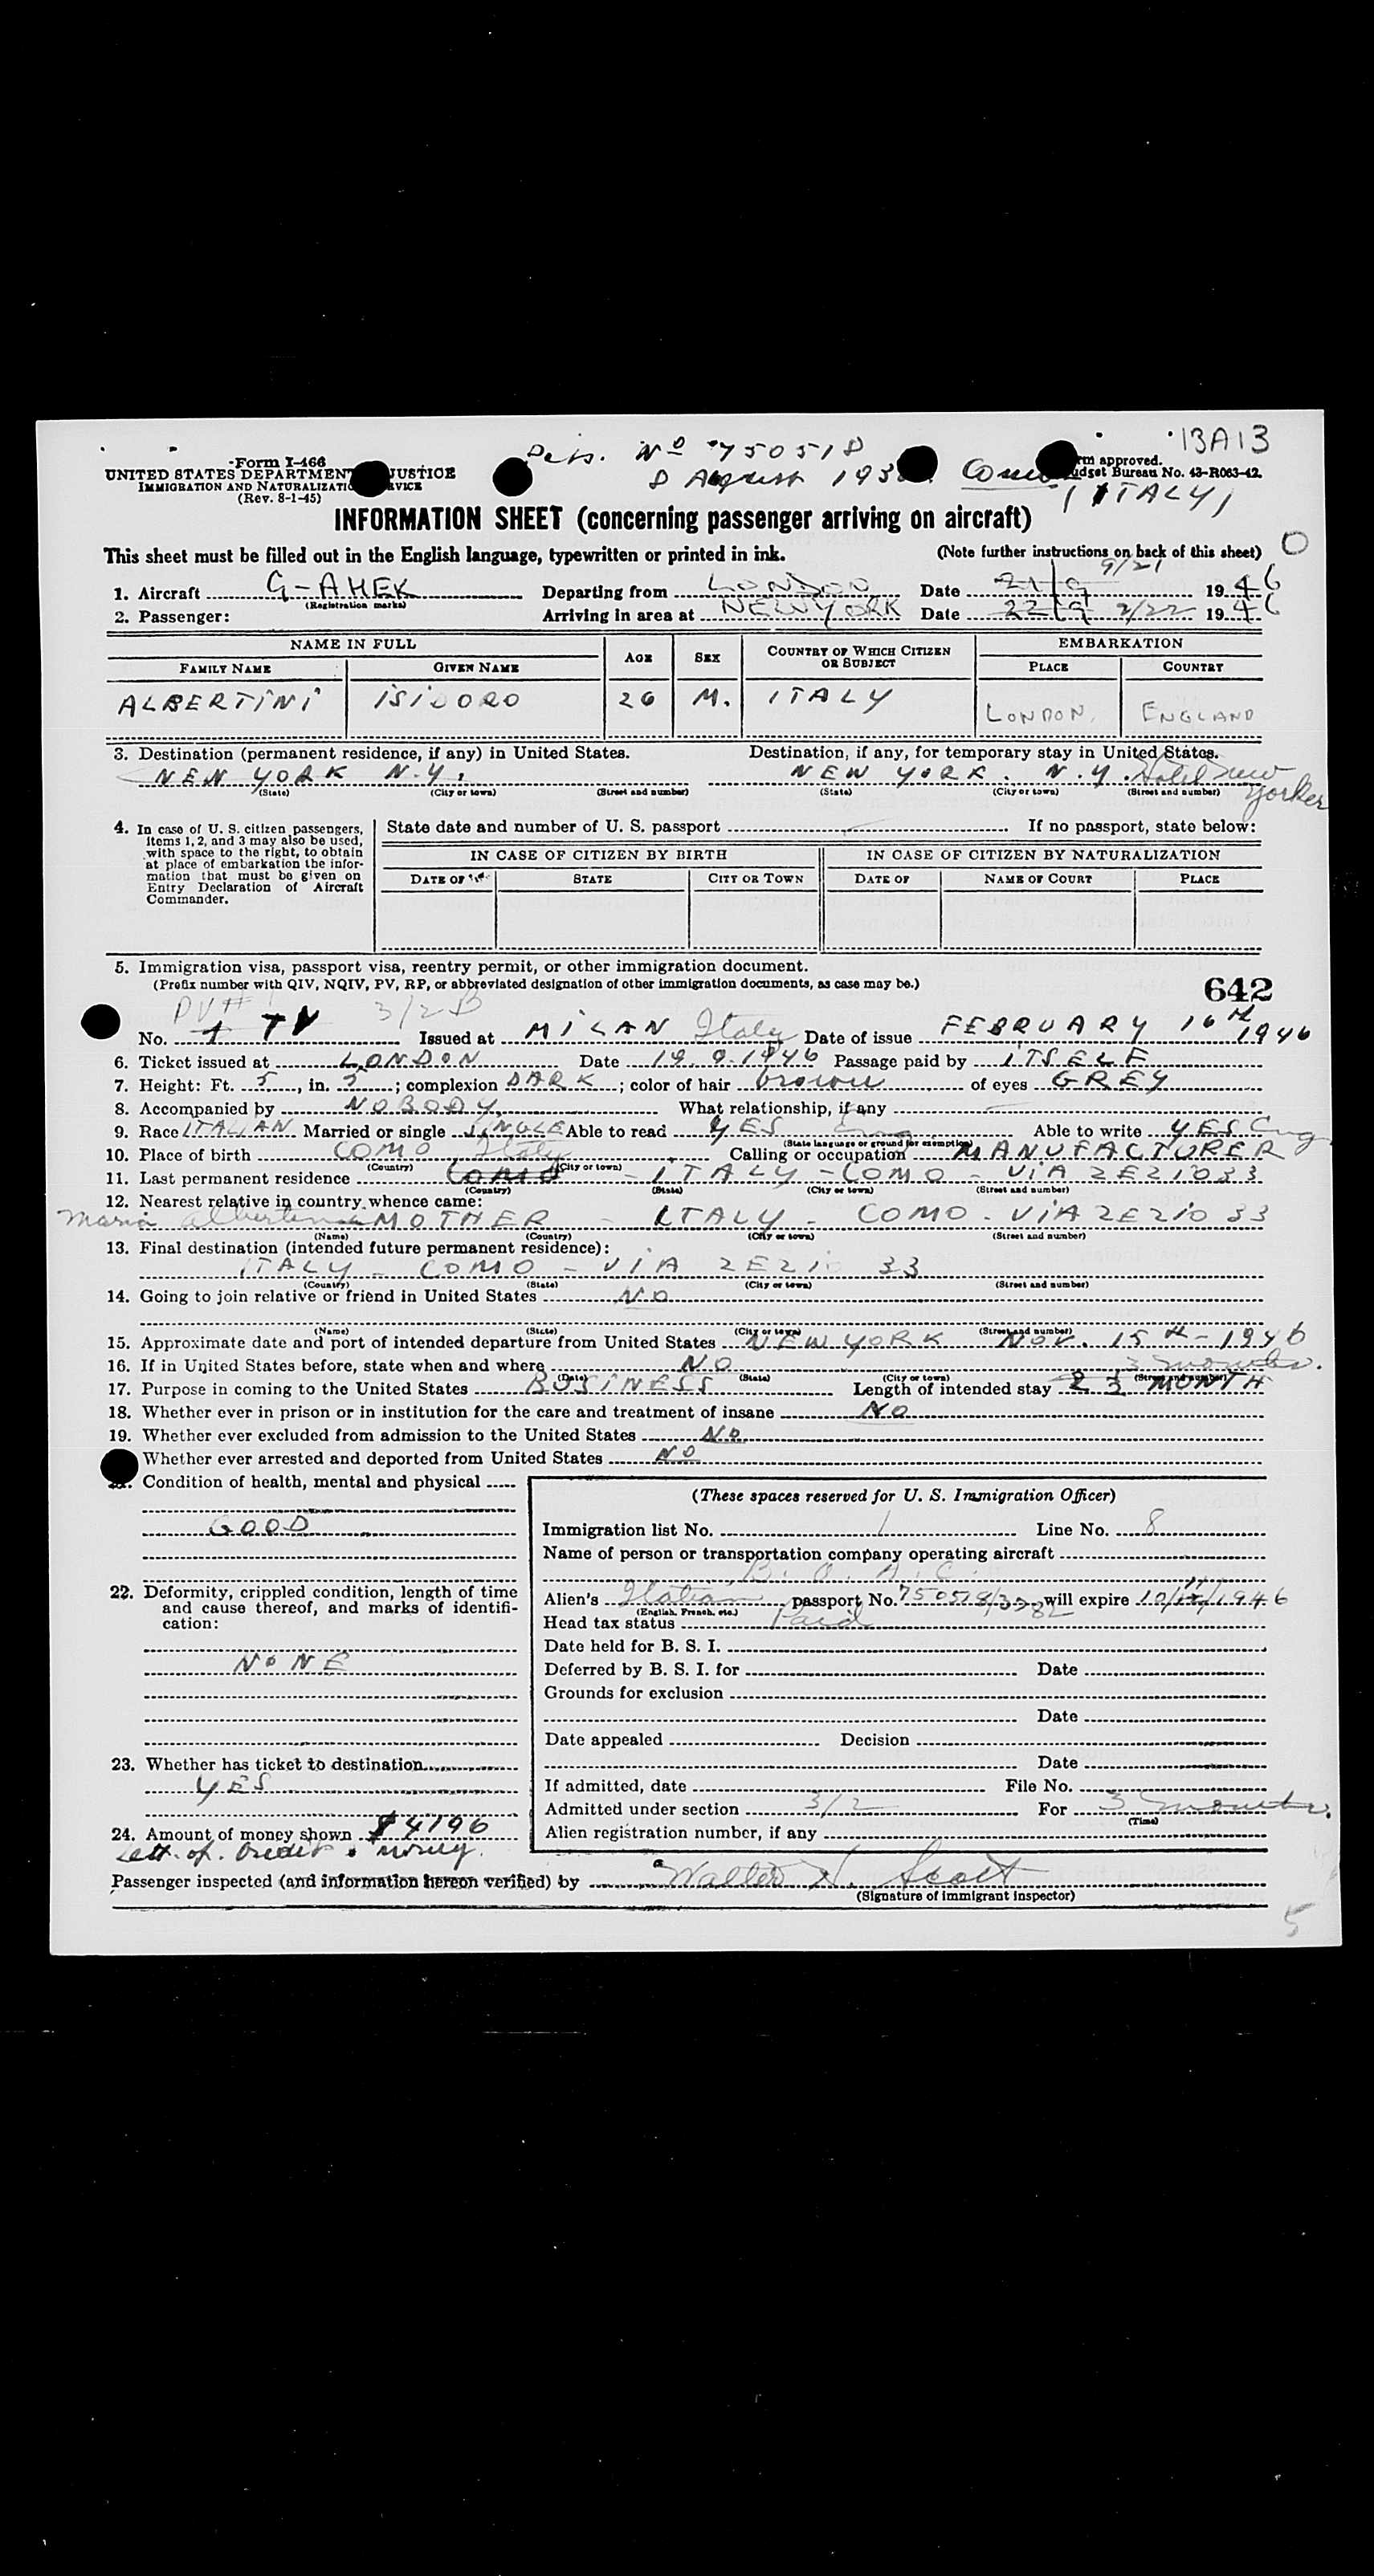 13A13
Form I-466
UNITED STATES DEPARTMENT JUSTICE
IMMIGRATION AND NATURALIZATION SERVICE
(Rev. 8-1-45)
No 750518
8 August 193
Como
(ITALY)
approved.
Budget Bureau No. 43-R063-42.
INFORMATION SHEET (concerning passenger arriving on aircraft)
This sheet must be filled out in the English language, typewritten or printed in ink. (Note further instructions on back of this sheet) O
1. Aircraft G-AHEK (Registration marks) Departing from LONDON Date 21/9 9/21 1946
2. Passenger: Arriving in area at NEW YORK Date 22/9 9/22 1946
NAME IN FULL AGE SEX COUNTRY OF WHICH CITIZEN OR SUBJECT EMBARKATION
FAMILY NAME GIVEN NAME PLACE COUNTRY
ALBERTINI ISIDORO 26 M. ITALY LONDON, ENGLAND
3. Destination (permanent residence, if any) in United States. Destination, if any, for temporary stay in United States.
NEW YORK N.Y. NEW YORK. N.Y. Hotel New Yorker
(State) (City or town) (Street and number) (State) (City or town) (Street and number)
4. In case of U. S. citizen passengers, items 1, 2, and 3 may also be used, with space to the right, to obtain at place of embarkation the information that must be given on Entry Declaration of Aircraft Commander.
State date and number of U. S. passport If no passport, state below:
IN CASE OF CITIZEN BY BIRTH IN CASE OF CITIZEN BY NATURALIZATION
DATE OF STATE CITY OR TOWN DATE OF NAME OF COURT PLACE
5. Immigration visa, passport visa, reentry permit, or other immigration document.
(Prefix number with QIV, NQIV, PV, RP, or abbreviated designation of other immigration documents, as case may be.) 642
PV# 3/2 B
No. 1 TV Issued at MILAN Italy Date of issue FEBRUARY 16th 1946
6. Ticket issued at LONDON Date 19.9.1946 Passage paid by ITSELF
7. Height: Ft. 5, in. 5; complexion DARK; color of hair brown of eyes GREY
8. Accompanied by NOBODY. What relationship, if any
9. Race ITALIAN Married or single SINGLE Able to read YES Eng Able to write YES Eng
(State language or ground for exemption)
10. Place of birth COMO Italy Calling or occupation MANUFACTURER
(Country) (City or town)
11. Last permanent residence COMO - ITALY - COMO - VIA ZEZIO 33
(Country) (State) (City or town) (Street and number)
12. Nearest relative in country whence came:
Maria MOTHER - ITALY - COMO - VIA ZEZIO 33
(Name) (Country) (City or town) (Street and number)
13. Final destination (intended future permanent residence):
ITALY - COMO - VIA ZEZIO 33
(Country) (State) (City or town) (Street and number)
14. Going to join relative or friend in United States NO
(Name) (State) (City or town) (Street and number)
15. Approximate date and port of intended departure from United States NEW YORK NOV. 15th - 1946
16. If in United States before, state when and where NO 3 months.
(Date) (State) (City or town) (Street and number)
17. Purpose in coming to the United States BUSINESS Length of intended stay 2 3 MONTH
18. Whether ever in prison or in institution for the care and treatment of insane NO
19. Whether ever excluded from admission to the United States NO
Whether ever arrested and deported from United States NO
Condition of health, mental and physical
GOOD
22. Deformity, crippled condition, length of time and cause thereof, and marks of identification:
NONE
23. Whether has ticket to destination
YES
24. Amount of money shown $4196
Lett. of. Credit. money.
(These spaces reserved for U. S. Immigration Officer)
Immigration list No. 1 Line No. 8
Name of person or transportation company operating aircraft
B. O. A. C.
Alien's Italian passport No. will expire 1946
(English, French, etc.)
Head tax status Paid
Date held for B. S. I.
Deferred by B. S. I. for Date
Grounds for exclusion
Date
Date appealed Decision
Date
If admitted, date File No.
Admitted under section 3/2 For 3 months.
(Time)
Alien registration number, if any
Passenger inspected (and information hereon verified) by Walter N. Scott
(Signature of immigrant inspector)
5